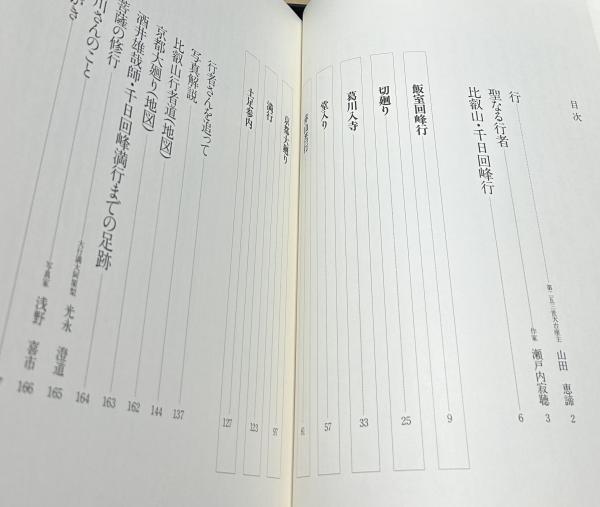 目次
行 第二五三世天台座主 山田 恵諦 2
聖なる行者 作家 瀬戸内寂聴 3
比叡山・千日回峰行 6
飯室回峰行 9
切廻り 25
葛川入寺 33
堂入り 57
61
京都大廻り 97
満行 123
土足参内 127
行者さんを追って 137
写真解説 144
比叡山行者道(地図) 162
京都大廻り(地図) 163
酒井雄哉師・千日回峰満行までの足跡 164
菩薩の修行 大行満大阿闍梨 光永 澄道 165
川さんのこと 写真家 浅野 喜市 166
がき